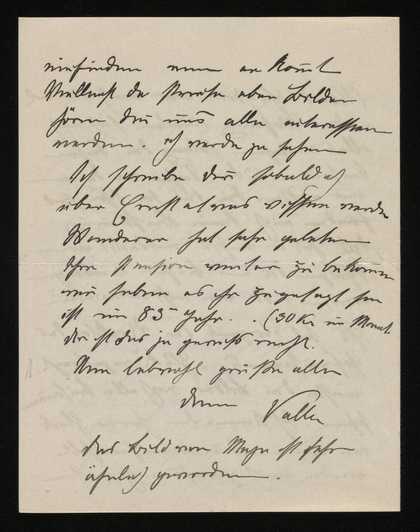 einfinden wenn er kommt
Vielleicht die Preise aber Bilder
hören die uns alle interessieren
werden. ich werde ja sehen
Ich schreibe dir sobald ich
über Ernst etwas wissen werde
Wanderer hat sehr gebeten
ihre Pension weiter zu bekommen
wir haben es ihr zugesagt sie
ist im 83 Jahr. . (30 Kr im Monat
dir ist das ja gewiss recht.
Nun lebwohl grüße alle
dein Vater
das Bild von Maja ist sehr
ähnlich geworden.